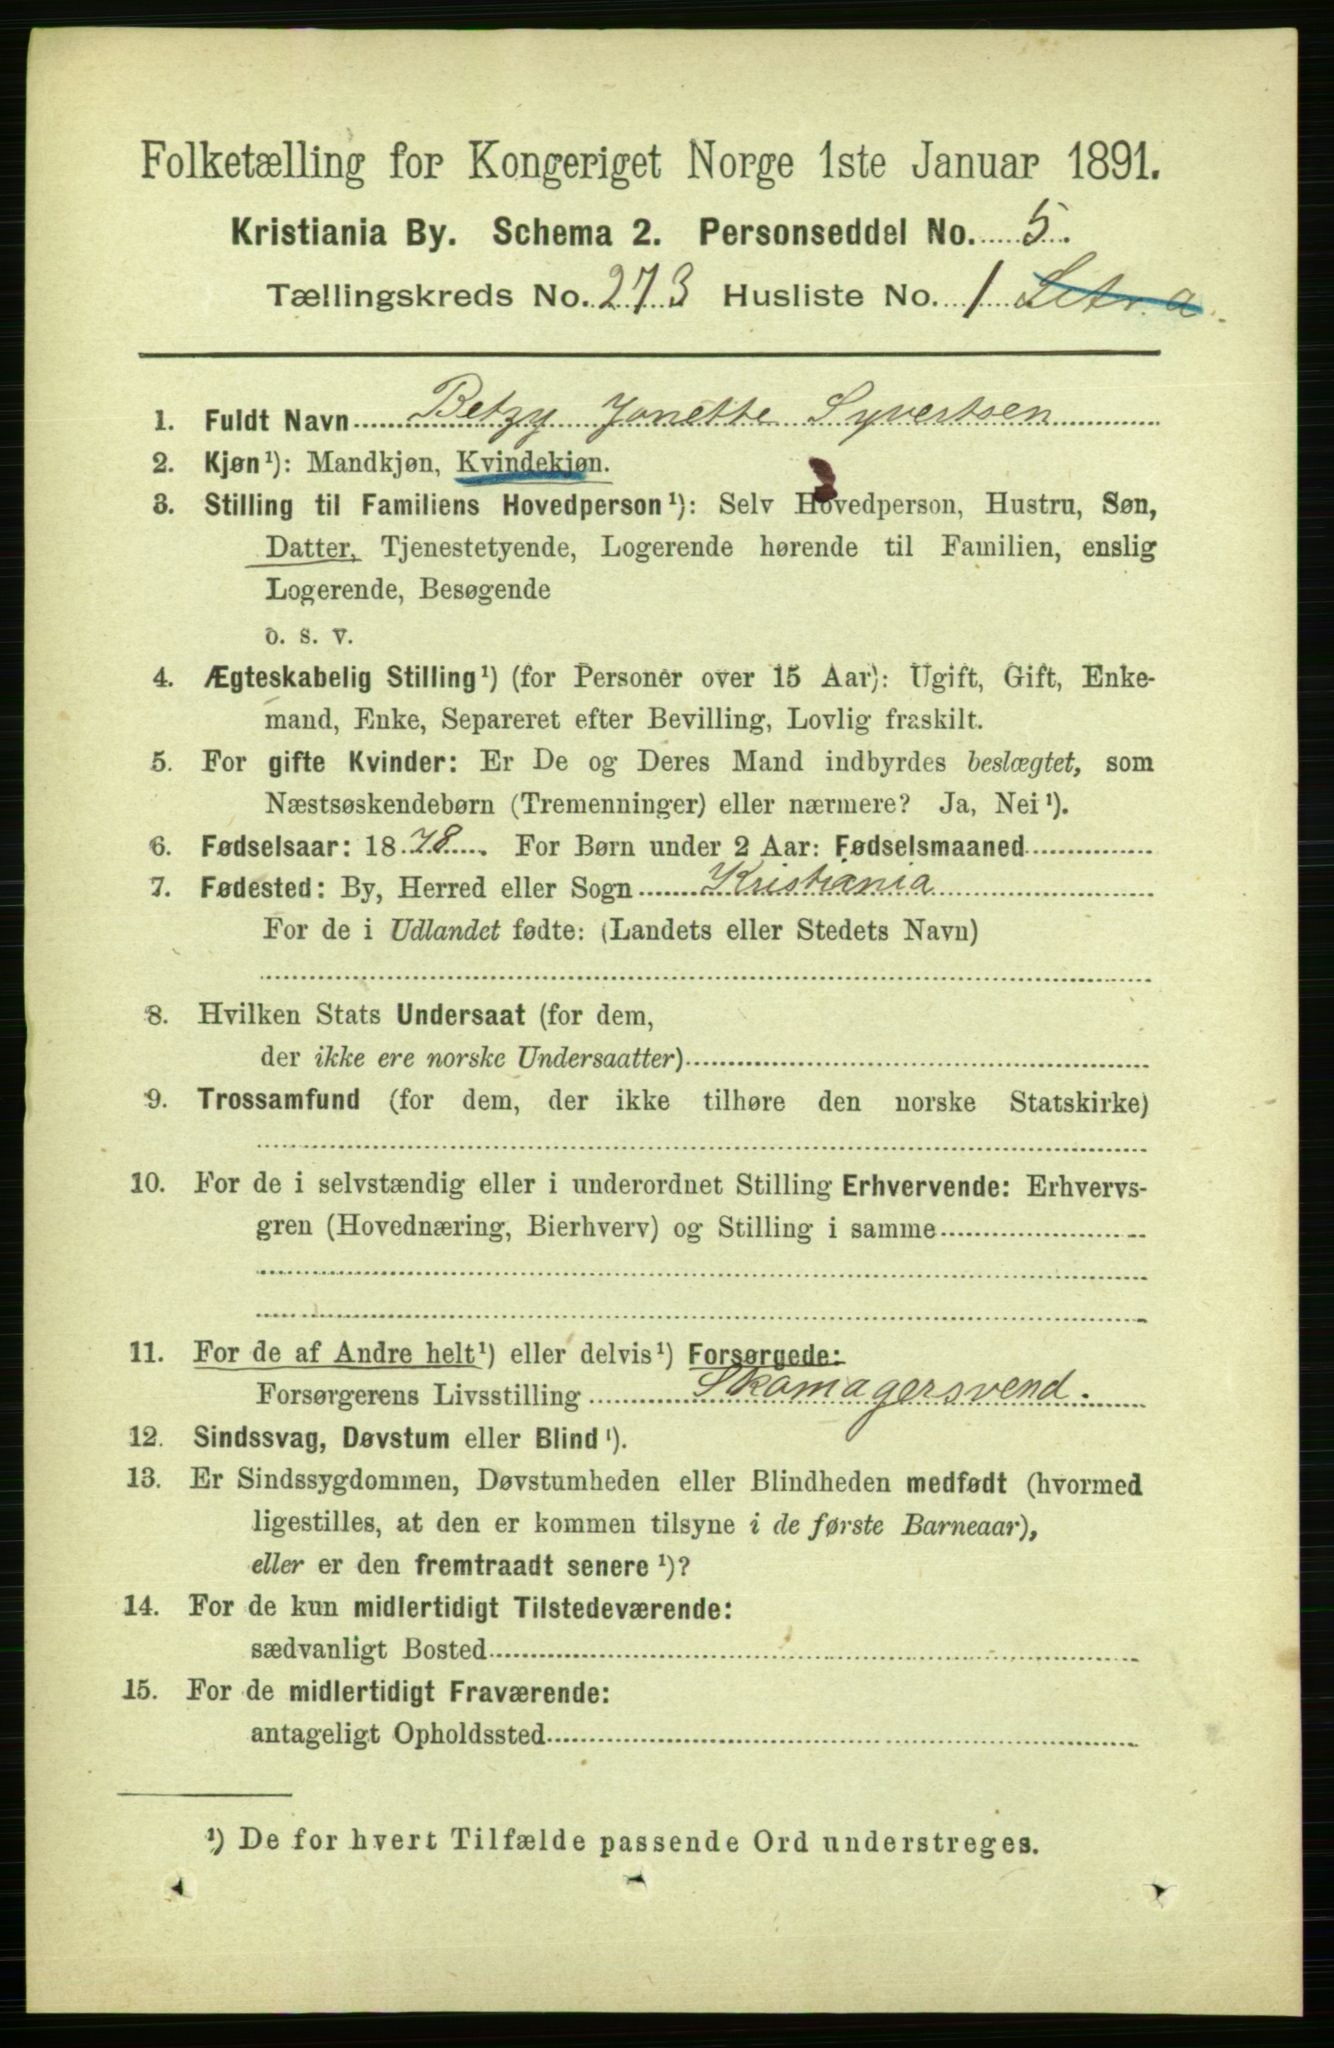 Folketælling for Kongeriget Norge 1ste Januar 1891.
Kristiania By. Schema 2. Personseddel No. 5.
Tællingskreds No. 273 Husliste No. 1 Litr. a.
1. Fuldt Navn Betzy Jonette Syvertsen
2. Kjøn ¹): Mandkjøn, Kvindekjøn.
3. Stilling til Familiens Hovedperson ¹): Selv Hovedperson, Hustru, Søn,
Datter, Tjenestetyende, Logerende hørende til Familien, enslig
Logerende, Besøgende
o. s. v.
4. Ægteskabelig Stilling ¹) (for Personer over 15 Aar): Ugift, Gift, Enke-
mand, Enke, Separeret efter Bevilling, Lovlig fraskilt.
5. For gifte Kvinder: Er De og Deres Mand indbyrdes beslægtet, som
Næstsøskendebørn (Tremenninger) eller nærmere? Ja, Nei ¹).
6. Fødselsaar: 1878. For Børn under 2 Aar: Fødselsmaaned
7. Fødested: By, Herred eller Sogn Kristiania
For de i Udlandet fødte: (Landets eller Stedets Navn)
8. Hvilken Stats Undersaat (for dem,
der ikke ere norske Undersaatter)
9. Trossamfund (for dem, der ikke tilhøre den norske Statskirke)
10. For de i selvstændig eller i underordnet Stilling Erhvervende: Erhvervs-
gren (Hovednæring, Bierhverv) og Stilling i samme
11. For de af Andre helt ¹) eller delvis ¹) Forsørgede:
Forsørgerens Livsstilling Skomagersvend.
12. Sindssvag, Døvstum eller Blind ¹).
13. Er Sindssygdommen, Døvstumheden eller Blindheden medfødt (hvormed
ligestilles, at den er kommen tilsyne i de første Barneaar),
eller er den fremtraadt senere ¹)?
14. For de kun midlertidigt Tilstedeværende:
sædvanligt Bosted
15. For de midlertidigt Fraværende:
antageligt Opholdssted
¹) De for hvert Tilfælde passende Ord understreges.